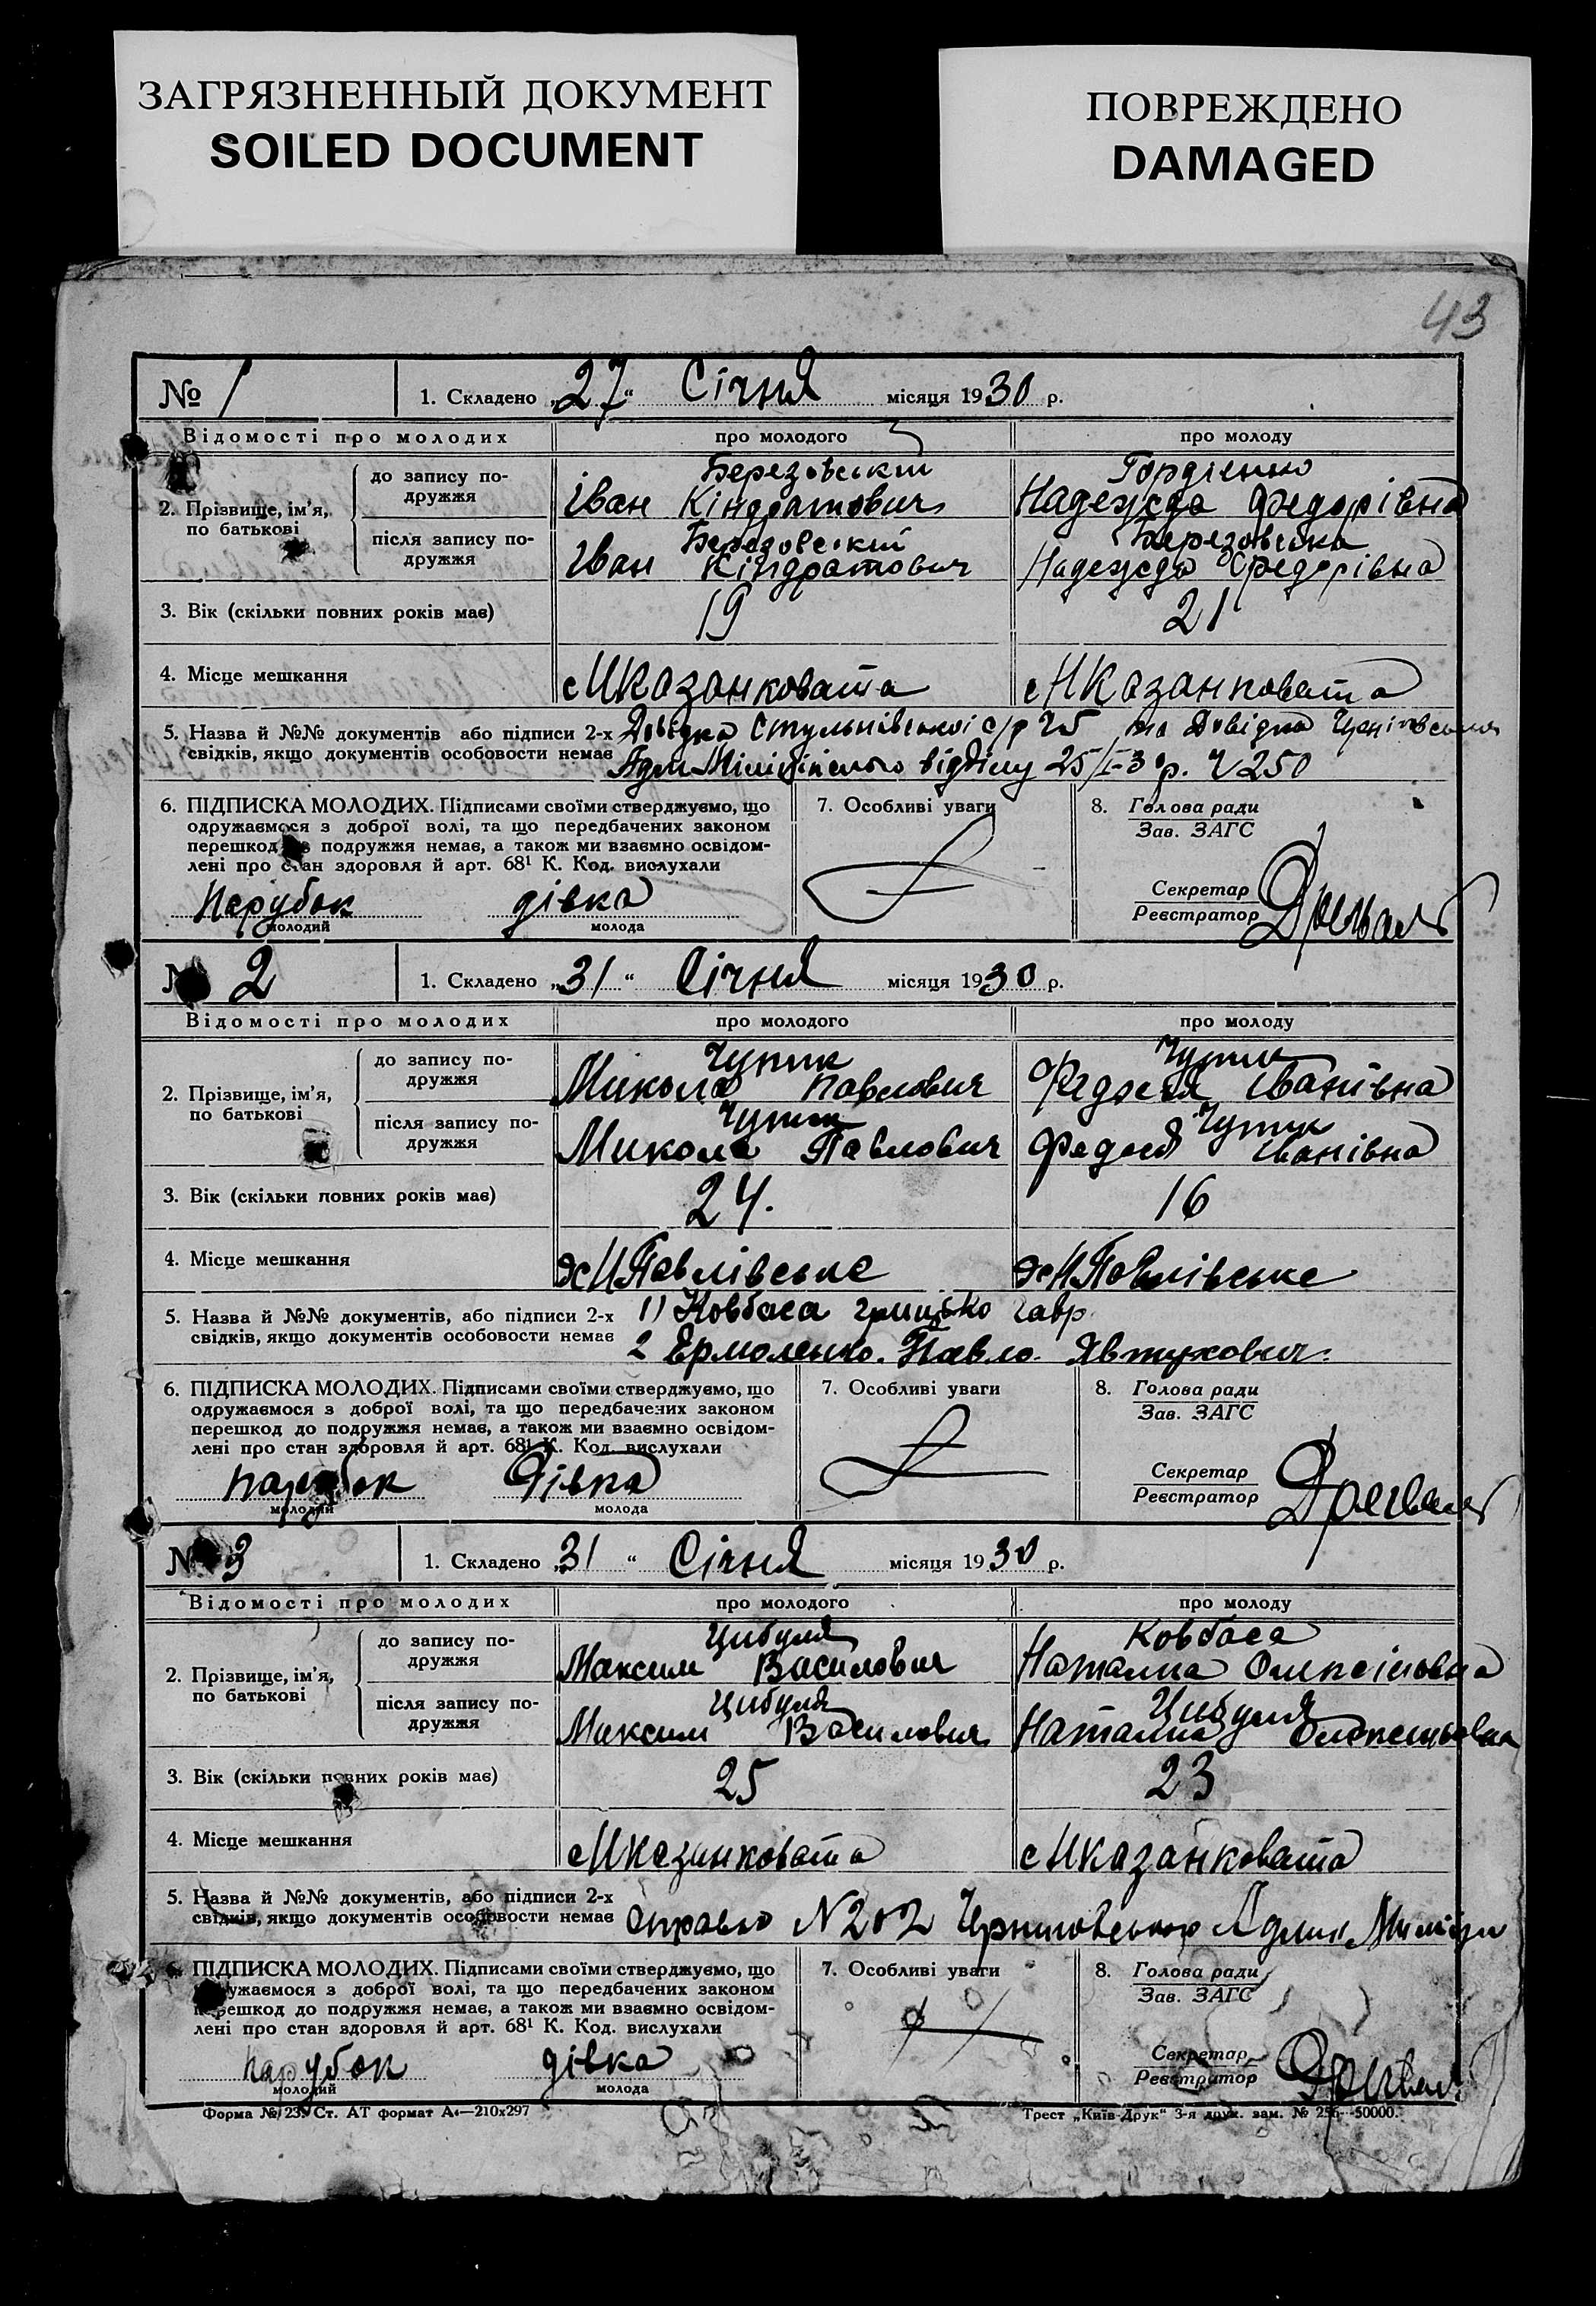 ЗАГРЯЗНЕННЫЙ ДОКУМЕНТ
SOILED DOCUMENT
ПОВРЕЖДЕНО
DAMAGED
43
№ 1
1. Складено „27“ Січня місяця 1930 р.
Відомості про молодих
про молодого
про молоду
2. Прізвище, ім'я, по батькові
до запису подружжя
Березовський
Іван Кіндратович
Гордієнко
Надежда Федорівна
після запису подружжя
Березовський
Іван Кіндратович
Березовська
Надежда Федорівна
3. Вік (скільки повних років має)
19
21
4. Місце мешкання
с Н Казанковата
с Н Казанковата
5. Назва й №№ документів або підписи 2-х
свідків, якщо документів особовости немає
Довідка Стульнівської с/р Ч5 та Довідка
Адм Міліційного відділу 25/I-30р. Ч 250
6. ПІДПИСКА МОЛОДИХ. Підписами своїми стверджуємо, що
одружаємося з доброї волі, та що передбачених законом
перешкод подружжя немає, а також ми взаємно освідом-
лені про стан здоровля й арт. 68¹ К. Код. вислухали
Парубок
молодий
дівка
молода
7. Особливі уваги
8. Голова ради
Зав. ЗАГС
Секретар
Реєстратор
№ 2
1. Складено „31“ Січня місяця 1930 р.
Відомості про молодих
про молодого
про молоду
2. Прізвище, ім'я,
по батькові
до запису по-
дружжя
Чупик
Микола Павлович
Чупик
Федося Іванівна
після запису по-
дружжя
Чупик
Микола Павлович
Чупик
Федося Іванівна
3. Вік (скільки повних років має)
24.
16
4. Місце мешкання
Н Павлівське
Н Павлівське
5. Назва й №№ документів, або підписи 2-х
свідків, якщо документів особовости немає
1) Ковбаса Грицько Гавр.
2 Ермоленко. Павло. Явтухович.
6. ПІДПИСКА МОЛОДИХ. Підписами своїми стверджуємо, що
одружаємося з доброї волі, та що передбачених законом
перешкод до подружжя немає, а також ми взаємно освідом-
лені про стан здоровля й арт. 68¹ К. Код. вислухали
парубок
молодий
Дівка
молода
7. Особливі уваги
8. Голова ради
Зав. ЗАГС
Секретар
Реєстратор
№ 3
1. Складено „31“ Січня місяця 1930 р.
Відомості про молодих
про молодого
про молоду
2. Прізвище, ім'я,
по батькові
до запису по-
дружжя
Цибуля
Максим Василович
Ковбаса
Наталка
після запису по-
дружжя
Цибуля
Максим Василович
Цибуля
Наталка
3. Вік (скільки повних років має)
25
23
4. Місце мешкання
с Н Казанковата
с Н Казанковата
5. Назва й №№ документів, або підписи 2-х
свідків, якщо документів особовости немає
N202
ПІДПИСКА МОЛОДИХ. Підписами своїми стверджуємо, що
ужаємося з доброї волі, та що передбачених законом
перешкод до подружжя немає, а також ми взаємно освідом-
лені про стан здоровля й арт. 68¹ К. Код. вислухали
парубок
молодий
дівка
молода
7. Особливі уваги
8. Голова ради
Зав. ЗАГС
Секретар
Реєстратор
Форма № 23. Ст. АТ формат А4—210х297
Трест „Київ-Друк“ 3-я друк. зам. № 256—50000.